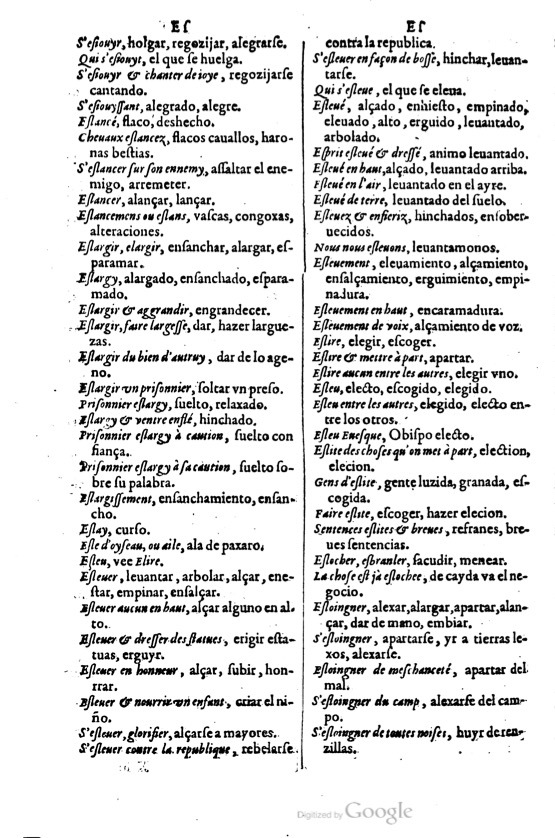 Eſ
S'eſiouyr, holgar, regozijar, alegrarſe.
Qui s'eſiouyt, el que ſe huelga.
S'eſiouyr & chanter de ioye, regozijarſe
cantando.
S'eſiouyſſant, alegrado, alegre.
Eſlancé, flaco, deshecho.
Cheuaux eſlancez, flacos cauallos, haro-
nas beſtias.
S'eſlancer ſur ſon ennemy, aſſaltar el ene-
migo, arremeter.
Eſlancer, alançar, lançar.
Eſlancemens ou eſlans, vaſcas, congoxas,
alteraciones.
Eſlargir, elargir, enſanchar, alargar, eſ-
paramar.
Eſlargy, alargado, enſanchado, eſpara-
mado.
Eſlargir & aggrandir, engrandecer.
Eſlargir, faire largeſſe, dar, hazer largue-
zas.
Eſlargir du bien d'autruy, dar de lo age-
no.
Eſlargir vn priſonnier, ſoltar vn preſo.
Priſonnier eſlargy, ſuelto, relaxado.
Eſlargy & ventre enflé, hinchado.
Priſonnier eſlargy à caution, ſuelto con
fiança.
Priſonnier eſlargy à ſa caution, ſuelto ſo-
bre ſu palabra.
Eſlargiſſement, enſanchamiento, enſan-
cho.
Eſlay, curſo.
Eſle d'oyſeau, ou aile, ala de paxaro.
Eſleu, vee Elire.
Eſleuer, leuantar, arbolar, alçar, ene-
ſtar, empinar, enſalçar.
Eſleuer aucun en haut, alçar alguno en al-
to.
Eſleuer & dreſſer des ſtatues, erigir eſta-
tuas, erguyr.
Eſleuer en honneur, alçar, ſubir, hon-
rrar.
Eſleuer & nourrir vn enfant, criar el ni-
ño.
S'eſleuer, glorifier, alçarſe a mayores.
S'eſleuer contre la republique, rebelarſe
Eſ
contra la republica.
S'eſleuer en façon de boſſe, hinchar, leuan-
tarſe.
Qui s'eſleue, el que ſe eleua.
Eſleué, alçado, enhieſto, empinado,
eleuado, alto, erguido, leuantado,
arbolado.
Eſprit eſleué & dreſſé, animo leuantado.
Eſleué en haut, alçado, leuantado arriba.
Eſleué en l'air, leuantado en el ayre.
Eſleué de terre, leuantado del ſuelo.
Eſleuez & enfierız, hinchados, enſober-
uecidos.
Nous nous eſleuons, leuantamonos.
Eſleuement, eleuamiento, alçamiento,
enſalçamiento, erguimiento, empi-
nadura.
Eſleuement en haut, encaramadura.
Eſleuement de voix, alçamiento de voz.
Eſlire, elegir, eſcoger.
Eſlire & mettre à part, apartar.
Eſlire aucun entre les autres, elegir vno.
Eſleu, electo, eſcogido, elegido.
Eſleu entre les autres, elegido, electo en-
tre los otros.
Eſleu Eueſque, Obiſpo electo.
Eſlite des choſes qu'on met à part, election,
elecion.
Gens d'eſlite, gente luzida, granada, eſ-
cogida.
Faire eſlite, eſcoger, hazer elecion.
Sentences eſlites & breues, refranes, bre-
ues ſentencias.
Eſlocher, eſbranler, ſacudir, menear.
La choſe eſt jà eſlochee, de cayda va el ne-
gocio.
Eſloingner, alexar, alargar, apartar, alan-
çar, dar de mano, embiar.
S'eſloingner, apartarſe, yr a tierras le-
xos, alexarſe.
Eſloingner de meſchanceté, apartar del
mal.
S'eſloingner du camp, alexarſe del cam-
po.
S'eſloingner de toutes noiſes, huyr de ren-
zillas.
Digitized by Google